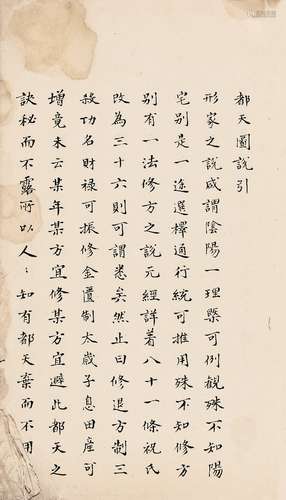 都天圖說引
形家之說咸謂陰陽一理槩可例觀殊不知陽
宅別是一途選擇通行統可推用殊不知修方
別有一法修方之說元經詳著八十一條祝氏
改為三十六則可謂悉矣然止曰修退方制三
殺功名財祿可振修金匱制太歲子息田産可
增竟未云某年某方宜修某方宜避此都天之
訣秘而不露所以人〻知有都天棄而不用